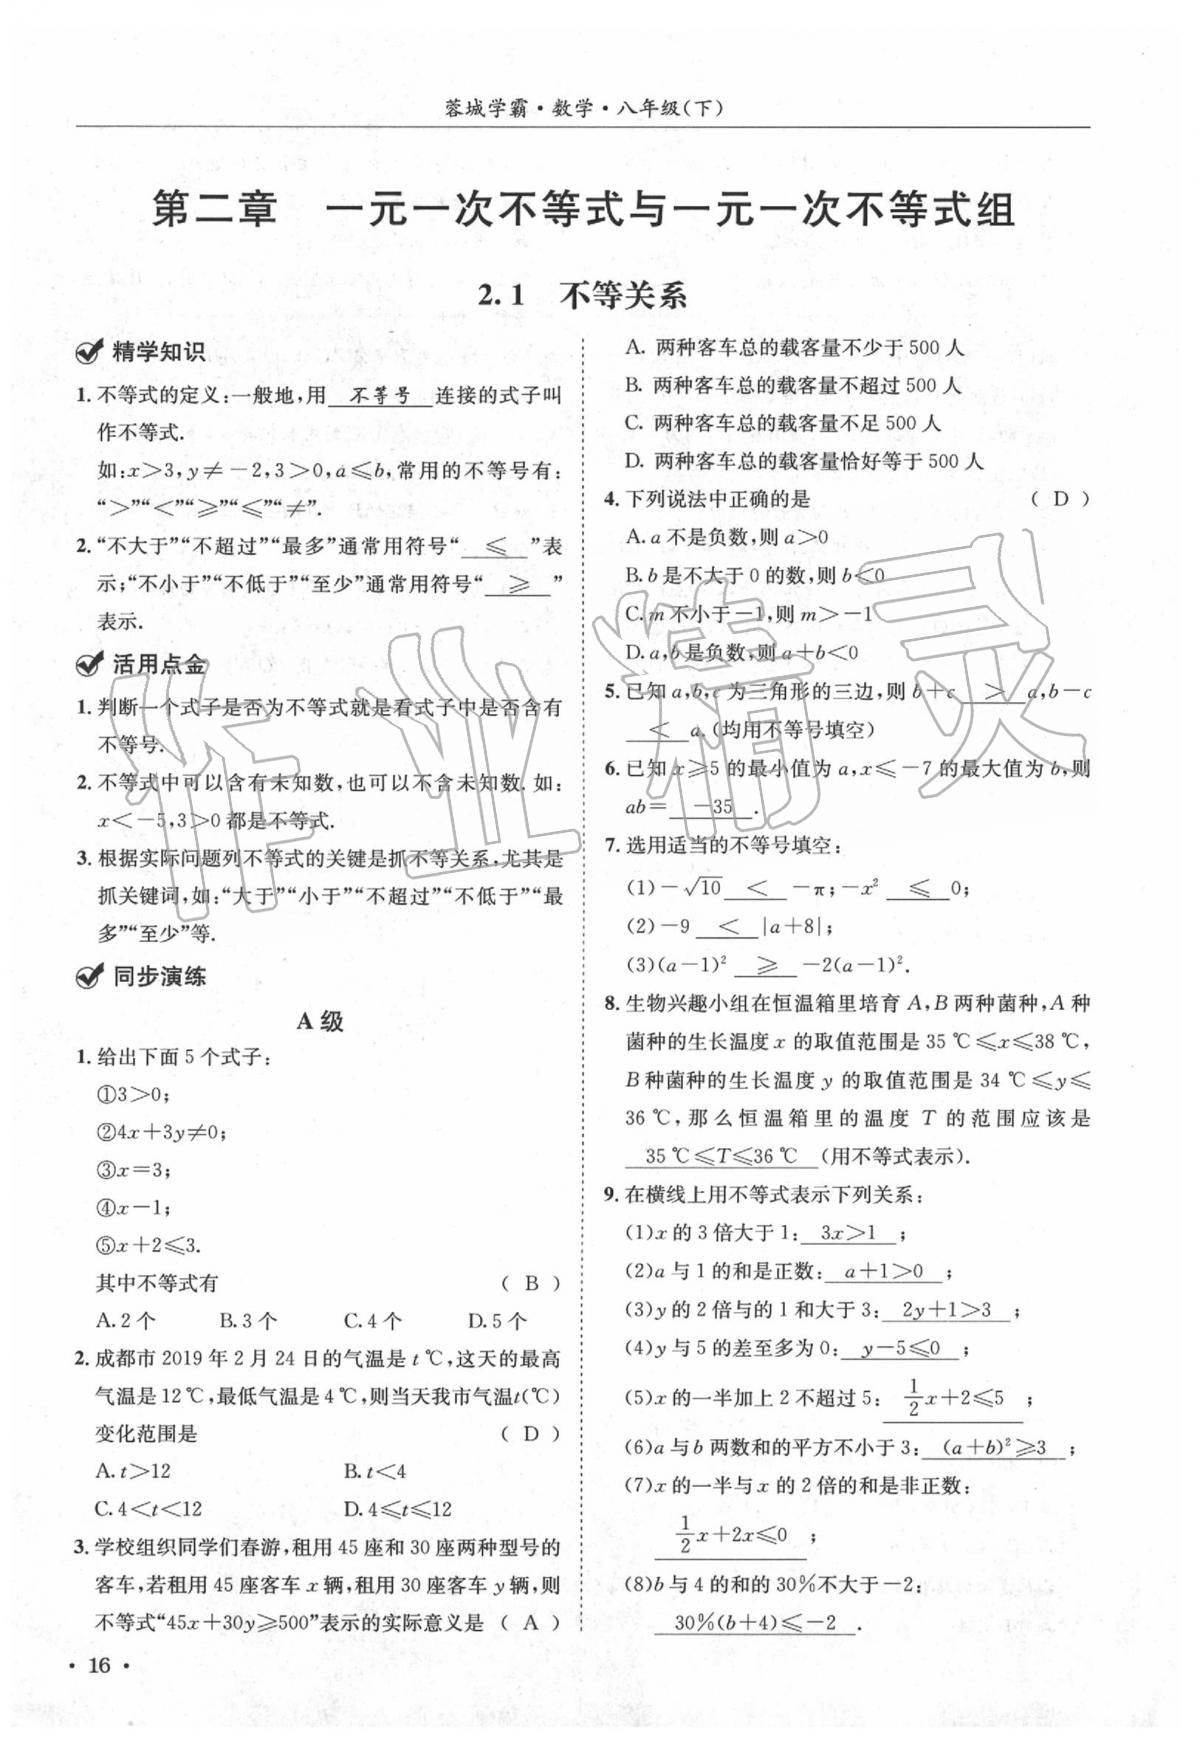 蓉城学霸·数学·八年级(下)
第二章 一元一次不等式与一元一次不等式组
2.1 不等关系
精学知识
1. 不等式的定义:一般地,用 不等号 连接的式子叫
作不等式.
如:x>3,y≠-2,3>0,a≤b,常用的不等号有:
“>”“<”“≥”“≤”“≠”.
2. “不大于”“不超过”“最多”通常用符号“ ≤ ”表
示;“不小于”“不低于”“至少”通常用符号“ ≥ ”
表示.
活用点金
1. 判断一个式子是否为不等式就是看式子中是否含有
不等号.
2. 不等式中可以含有未知数,也可以不含未知数. 如:
x<-5,3>0都是不等式.
3. 根据实际问题列不等式的关键是抓不等关系,尤其是
抓关键词,如:“大于”“小于”“不超过”“不低于”“最
多”“至少”等.
同步演练
A 级
1. 给出下面 5 个式子:
①3>0;
②4x+3y≠0;
③x=3;
④x-1;
⑤x+2≤3.
其中不等式有 ( B )
A. 2 个 B. 3 个 C. 4 个 D. 5 个
2. 成都市 2019 年 2 月 24 日的气温是 t ℃,这天的最高
气温是 12 ℃,最低气温是 4 ℃,则当天我市气温t(℃)
变化范围是 ( D )
A. t>12 B. t<4
C. 4<t<12 D. 4≤t≤12
3. 学校组织同学们春游,租用 45 座和 30 座两种型号的
客车,若租用 45 座客车 x 辆,租用 30 座客车 y 辆,则
不等式“45x+30y≥500”表示的实际意义是 ( A )
A. 两种客车总的载客量不少于 500 人
B. 两种客车总的载客量不超过 500 人
C. 两种客车总的载客量不足 500 人
D. 两种客车总的载客量恰好等于 500 人
4. 下列说法中正确的是 ( D )
A. a 不是负数,则 a>0
B. b 是不大于 0 的数,则 b<0
C. m 不小于-1,则 m>-1
D. a,b 是负数,则 a+b<0
5. 已知 a,b,c 为三角形的三边,则 b+c > a,b-c
< a.(均用不等号填空)
6. 已知 x≥5 的最小值为 a,x≤-7 的最大值为 b,则
ab= -35 .
7. 选用适当的不等号填空:
(1)-√10 < -π;-x² ≤ 0;
(2)-9 < |a+8|;
(3)(a-1)² ≥ -2(a-1)².
8. 生物兴趣小组在恒温箱里培育 A,B 两种菌种,A 种
菌种的生长温度 x 的取值范围是 35 ℃≤x≤38 ℃,
B 种菌种的生长温度 y 的取值范围是 34 ℃≤y≤
36 ℃,那么恒温箱里的温度 T 的范围应该是
35 ℃≤T≤36 ℃ (用不等式表示).
9. 在横线上用不等式表示下列关系:
(1)x 的 3 倍大于 1: 3x>1 ;
(2)a 与 1 的和是正数: a+1>0 ;
(3)y 的 2 倍与的 1 和大于 3: 2y+1>3 ;
(4)y 与 5 的差至多为 0: y-5≤0 ;
(5)x 的一半加上 2 不超过 5: 1/2x+2≤5 ;
(6)a 与 b 两数和的平方不小于 3: (a+b)²≥3 ;
(7)x 的一半与 x 的 2 倍的和是非正数:
1/2x+2x≤0 ;
(8)b 与 4 的和的 30%不大于-2:
30%(b+4)≤-2 .
· 16 ·
作业精灵